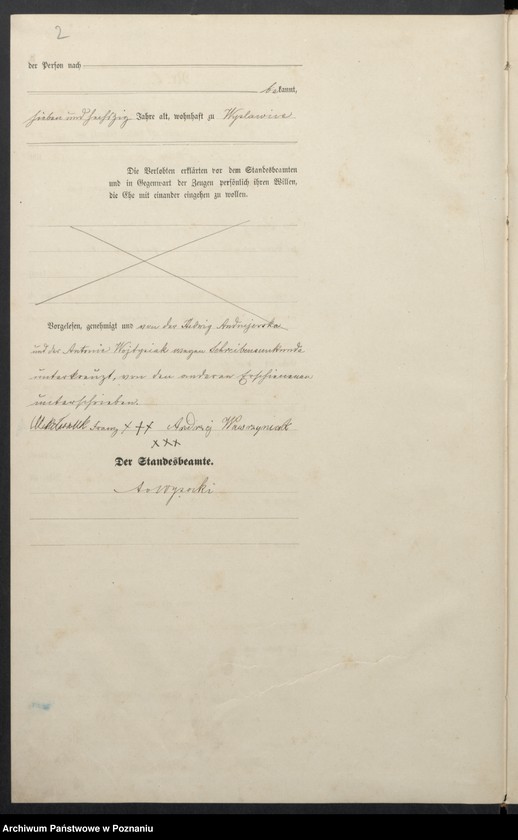 2
der Person nach
bekannt,
sieben und sechszig Jahre alt, wohnhaft zu
Die Verlobten erklärten vor dem Standesbeamten
und in Gegenwart der Zeugen persönlich ihren Willen,
die Ehe mit einander eingehen zu wollen.
Vorgelesen, genehmigt und von der Hedwig
und der Antonie wegen Schreibensunkunde
unterkreuzt, von den anderen Erschienenen
unterschrieben.
Franz x + x Andrzej Wawrzyniak
x x x
Der Standesbeamte.
Archiwum Państwowe w Poznaniu